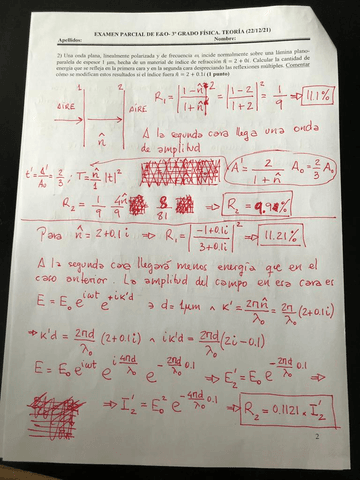 EXAMEN PARCIAL DE E&O- 3º GRADO FÍSICA. TEORÍA (22/12/21)
Apellidos: Nombre:
2) Una onda plana, linealmente polarizada y de frecuencia ω, incide normalmente sobre una lámina plano-
paralela de espesor 1 μm, hecha de un material de índice de refracción n̂ = 2 + 0i. Calcular la cantidad de
energía que se refleja en la primera cara y en la segunda cara despreciando las reflexiones múltiples. Comentar
cómo se modifican estos resultados si el índice fuera n̂ = 2 + 0.1i (1 punto)
1 2
AIRE n̂ AIRE
R₁ = |1-n̂/1+n̂|² = |1-2/1+2|² = 1/9 ⇒ 11.1%
A la segunda cara llega una onda
de amplitud
t' = A'/A₀ = 2/3 ; T = n̂/1 |t|²
A' = 2/1+n̂ A₀ = 2/3 A₀
R₂ = 1/9 4n̂/9 8/81 ⇒ R₂ = 9.9%
Para n̂ = 2+0.1i ⇒ R₁ = |-1+0.1i/3+0.1i|² ⇒ 11.21%
A la segunda cara llegará menos energía que en el
caso anterior. La amplitud del campo en esa cara es
E = E₀ e^iωt e^+ik'd ∋ d = 1μm ∧ k' = 2πn̂/λ₀ = 2π/λ₀ (2+0.1i)
⇒ k'd = 2πd/λ₀ (2+0.1i) ∧ ik'd = 2πd/λ₀ (2i-0.1)
E = E₀ e^iωt e^i4πd/λ₀ e^-2πd/λ₀ 0.1 ⇒ E₂' = E₀ e^-2πd/λ₀ 0.1 ⇒
⇒ I₂' = E₀² e^-4πd/λ₀ 0.1 ⇒ R₂ = 0.1121 × I₂'
2